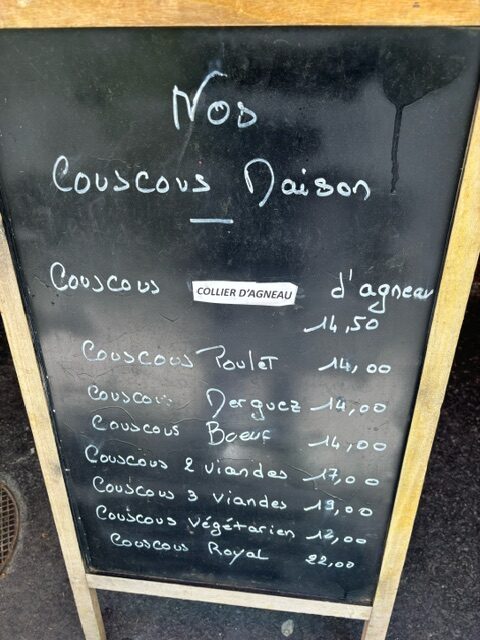 Nos
Couscous Maison
Couscous COLLIER D'AGNEAU d'agneau
14,50
Couscous Poulet 14,00
Couscous Merguez 14,00
Couscous Boeuf 14,00
Couscous 2 viandes 17,00
Couscous 3 viandes 19,00
Couscous végétarien 12,00
Couscous Royal 22,00